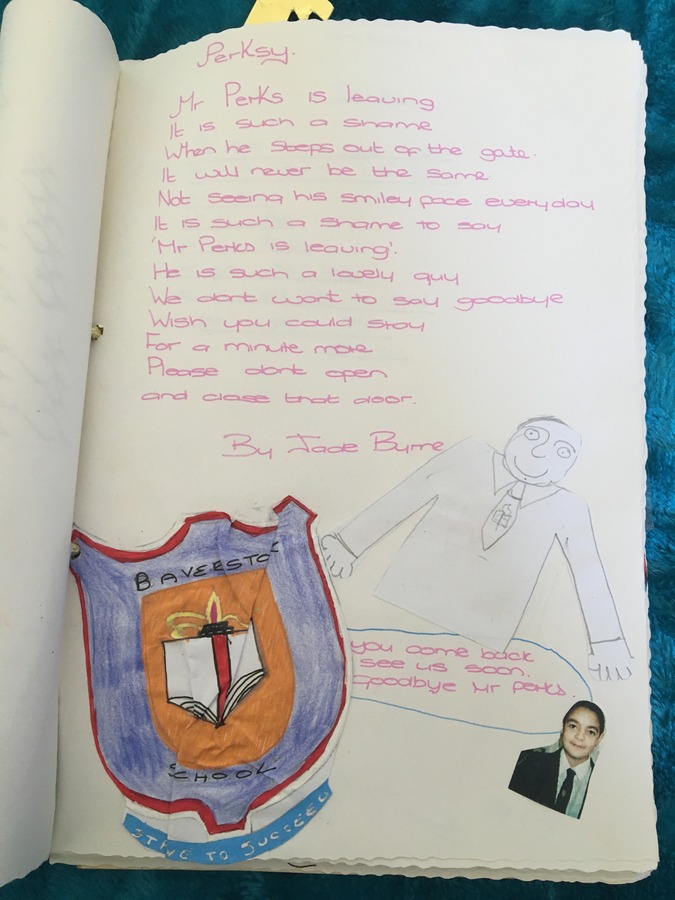 Perksy.
Mr Perks is leaving
It is such a shame
When he steps out of the gate.
It will never be the same
Not seeing his smiley face everyday
It is such a shame to say
'Mr Perks is leaving'.
He is such a lovely guy
We dont want to say goodbye
Wish you could stay
For a minute more
Please dont open
and close that door.
By Jade Byrne
BAVERSTOC
SCHOOL
STIVE TO SUCCEED
you come back
see us soon.
Goodbye Mr Perks.